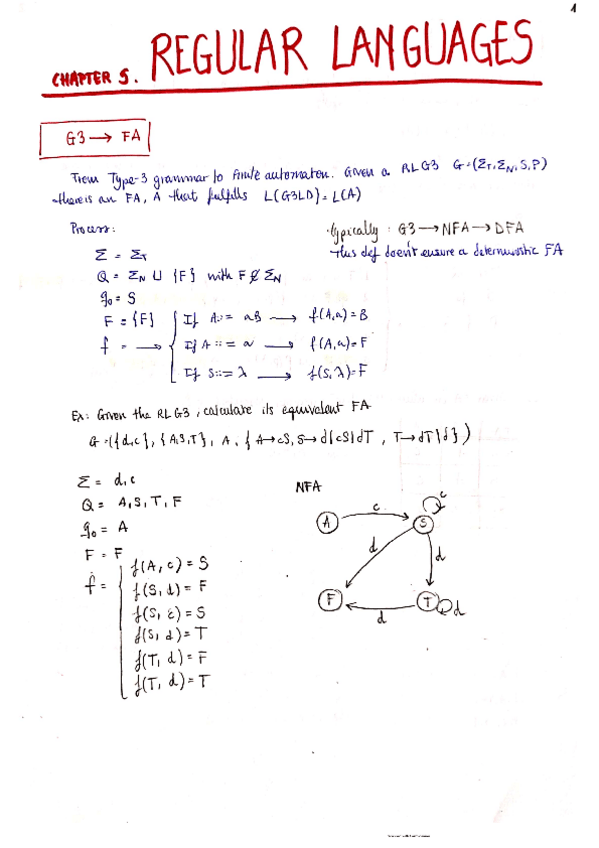 1
CHAPTER 5. REGULAR LANGUAGES
G3 → FA
From Type-3 grammar to finite automaton. Given a RLG3 G=(Σ_T, Σ_N, S, P)
there is an FA, A that fulfills L(G3LD) = L(A)
Process:
Σ = Σ_T
Q = Σ_N ∪ {F} with F ∉ Σ_N
q₀ = S
F = {F}
f = →
If A::= aB → f(A,a)=B
If A::= a → f(A,a)=F
If S::= λ → f(S,λ)=F
Typically: G3 → NFA → DFA
This def doesn't ensure a deterministic FA
Ex: Given the RLG3, calculate its equivalent FA
G=({d,c}, {A,S,T}, A, {A→cS, S→d|cS|dT, T→dT|d})
Σ = d,c
Q = A, S, T, F
q₀ = A
F = F
f =
f(A, c) = S
f(S, d) = F
f(S, c) = S
f(S, d) = T
f(T, d) = F
f(T, d) = T
NFA
A c S c
d d
F d T d